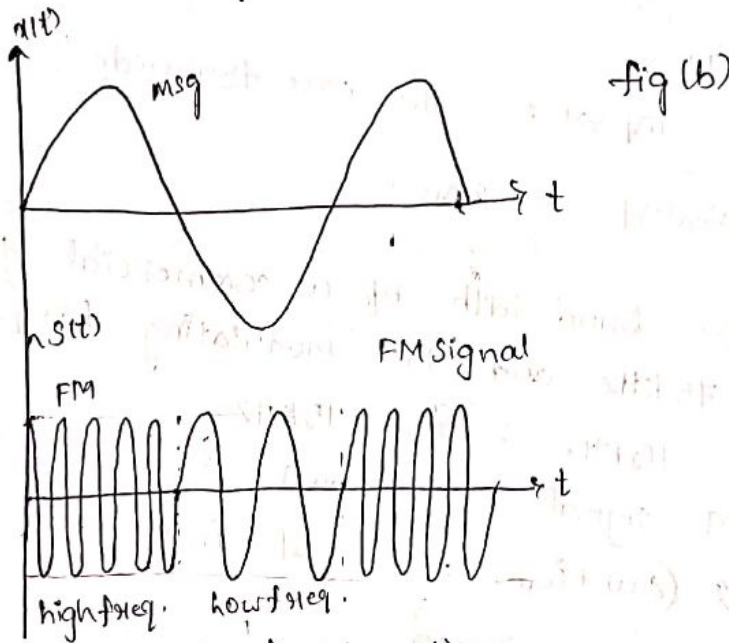 x(t)
msg
fig (b)
t
S(t)
FM Signal
FM
t
high freq. low freq.